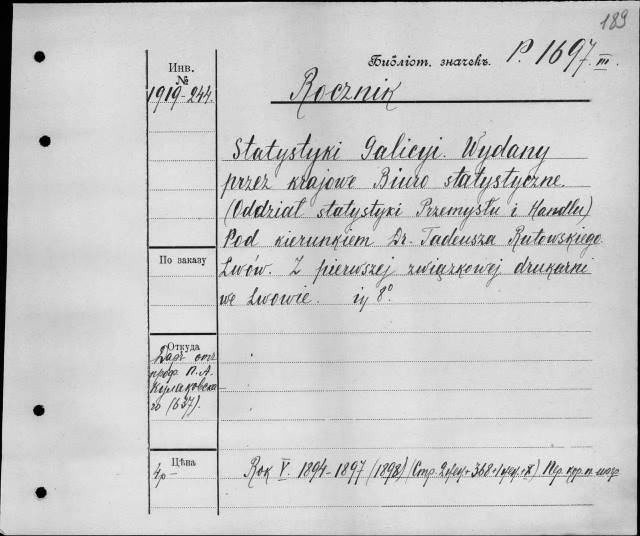 189
Инв.
№
1919-244.
Библіот. значекъ. P. 1697. III.
Rocznik
Statystyki Galicyi. Wydany
przez krajowe Biuro statystyczne.
(Oddział statystyki Przemysłu i Handlu)
Pod kierunkiem Dr. Tadeusza Rutowskiego.
Lwów. Z pierwszej związkowej drukarni
we Lwowie. 8°.
По заказу
Откуда
Даръ отъ
проф. П. А.
Кулаковска-
го (637).
Цѣна
4р-
Rok V. 1894-1897 (1898) (Стр. 2 + 368 + 1 + X) Пер.